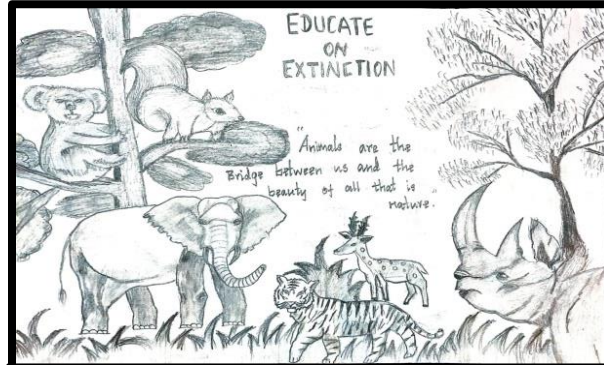 EDUCATE
ON
EXTINCTION
"Animals are the
Bridge between us and the
beauty of all that is
nature."